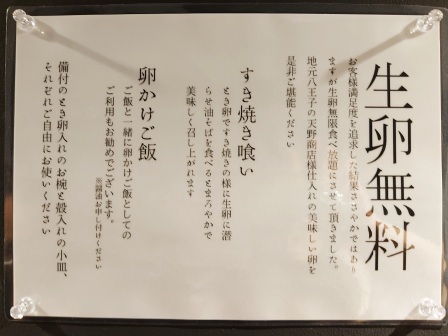 生卵無料
お客様満足度を追求した結果ささやかではあり
ますが生卵無限食べ放題にさせて頂きました。
地元八王子の天野商店様仕入れの美味しい卵を
是非ご堪能ください
すき焼き喰い
とき卵ですき焼きの様に生卵に潜
らせ油そばを食べるとまろやかで
美味しく召し上がれます
卵かけご飯
ご飯と一緒に卵かけご飯としての
ご利用もお勧めでございます。
※醤油お申し付けください
備付のとき卵入れのお椀と殻入れの小皿、
それぞれご自由にお使いください